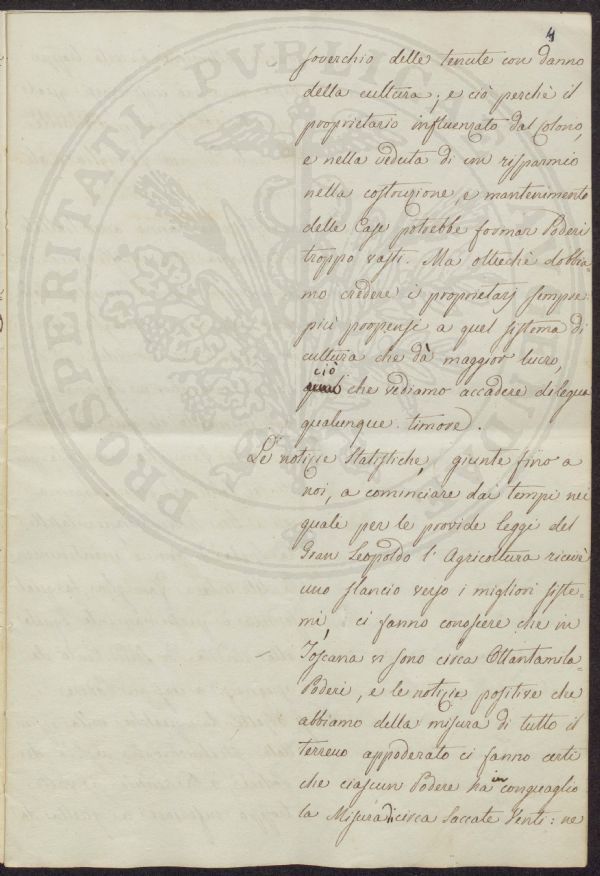 4
soverchio delle tenute con danno
della cultura; e ciò perchè il
proprietario influenzato dal Colono,
e nella veduta di un risparmio
nella costruzione, e mantenimento
delle Case potrebbe formar Poderi
troppo vasti. Ma oltrechè dobbia-
mo credere i proprietarj sempre
più propensi a quel sistema di
cultura che dà maggior lucro,
ciò che vediamo accadere dilegua
qualunque timore.
Le notizie Statistiche, giunte fino a
noi, a cominciare dai tempi nei
quale per le provide leggi del
Gran Leopoldo l'Agricoltura ricevè
uno slancio verso i migliori siste-
mi, ci fanno conoscere che in
Toscana vi sono circa Ottantamila
Poderi, e le notizie positive che
abbiamo della misura di tutto il
terreno appoderato ci fanno certi
che ciascun Podere ha in conguaglio
la Misura di circa Saccate Venti: ne
PROSPERITATI PUBLICAE